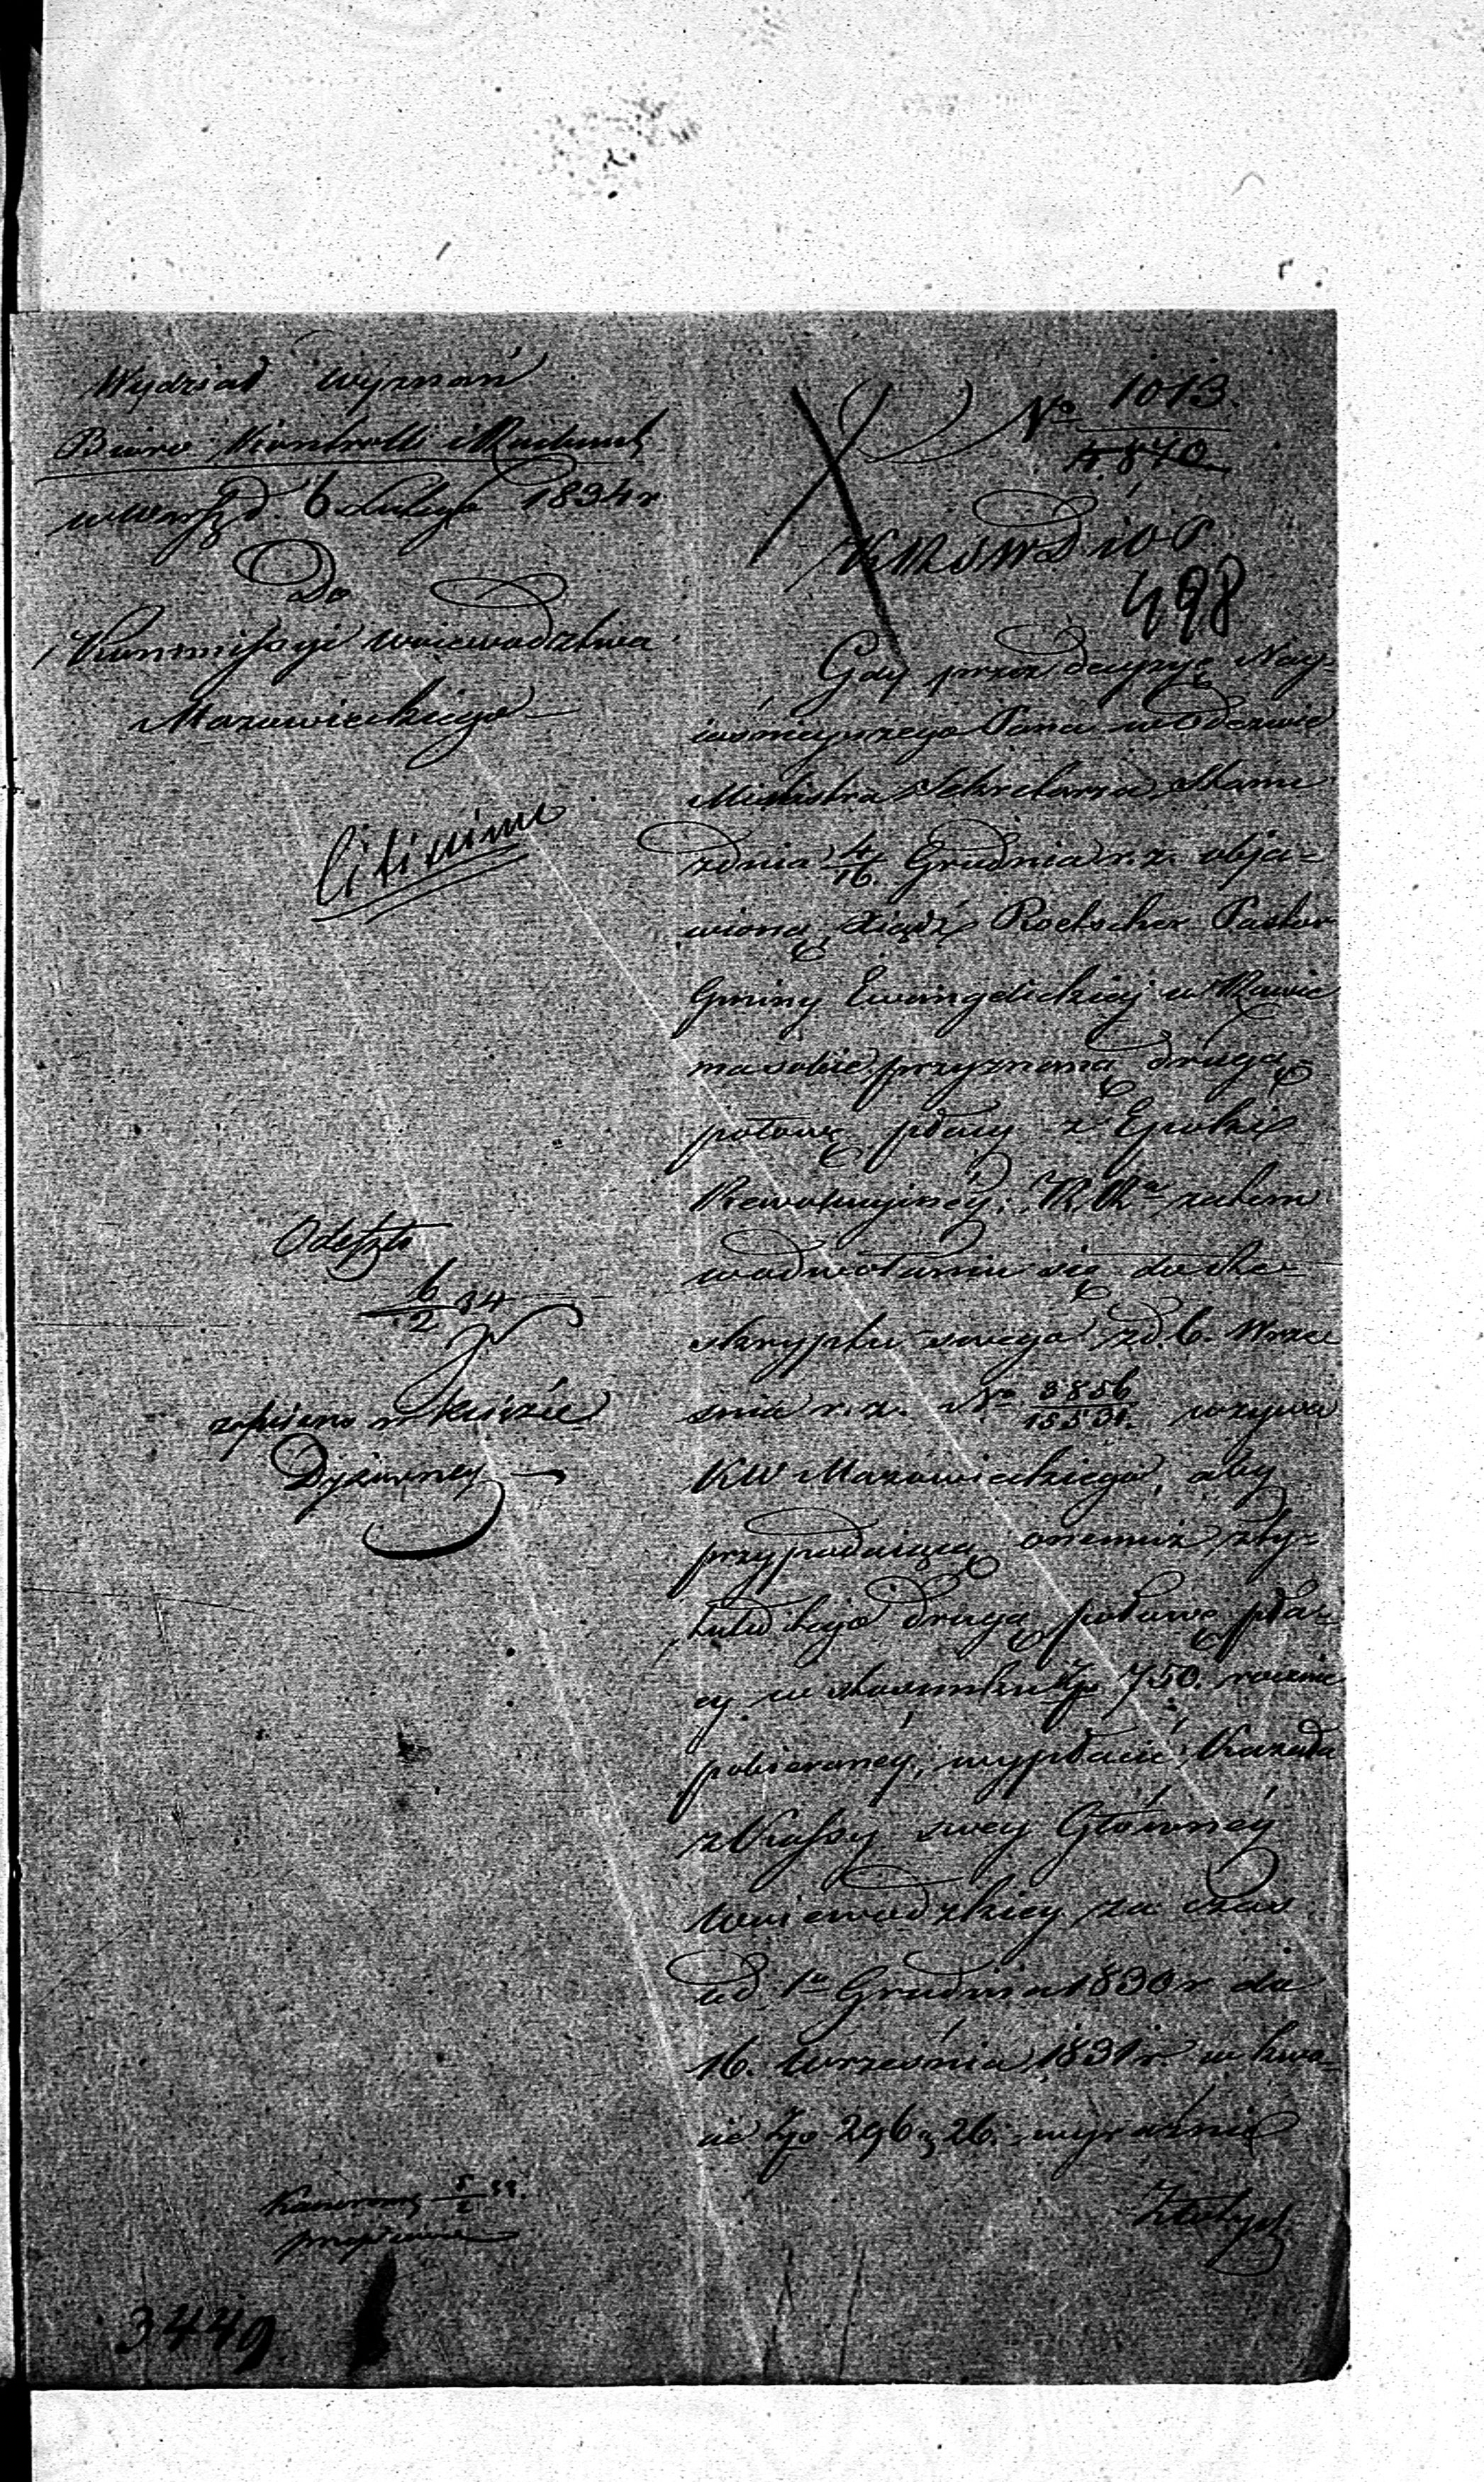 Wydział wyznań
Biuro Kontrolli i Rachunk
w Warsz d. 6 Lutego 1834 r
Do
Kommissyi Woiewodztwa
Mazowieckiego
Citissime
Odeszło
6/2 34
zapisano w Księdze
Dyżurney
propinuie
3449
No 1013.
4870
KRSWD i OP.
498
Gdy przez decyzyę Nay-
iaśnieyszego Pana w Odezwie
Ministra Sekretarza Stanu
z dnia 4/16. Grudnia r. z. obja-
wioną, Xiądz Roetscher Pastor
Gminy Ewangelickiej w Rawie
ma sobie przyznaną drugą
połowę płacy z Epoki
Rewolucyjnéy; K. Rza zatem
w odwołaniu się do Re-
skryptu swego z d. 6. Wrze
śnia r. z. No 3856/15531. wzywa
KW Mazowieckiego, aby
przypadaiącą onemuż z ty-
tułu tego drugą połowę pła-
cy w stosunku Złp 750. rocznie
pobieranéy, wypłacić kazała
z Kassy swey Głównéy
Woiewodzkiey za czas
od 1o Grudnia 1830 r do
16. Września 1831 r. w kwo-
cie Złp 296 g 26. wyraźnie
Złotych